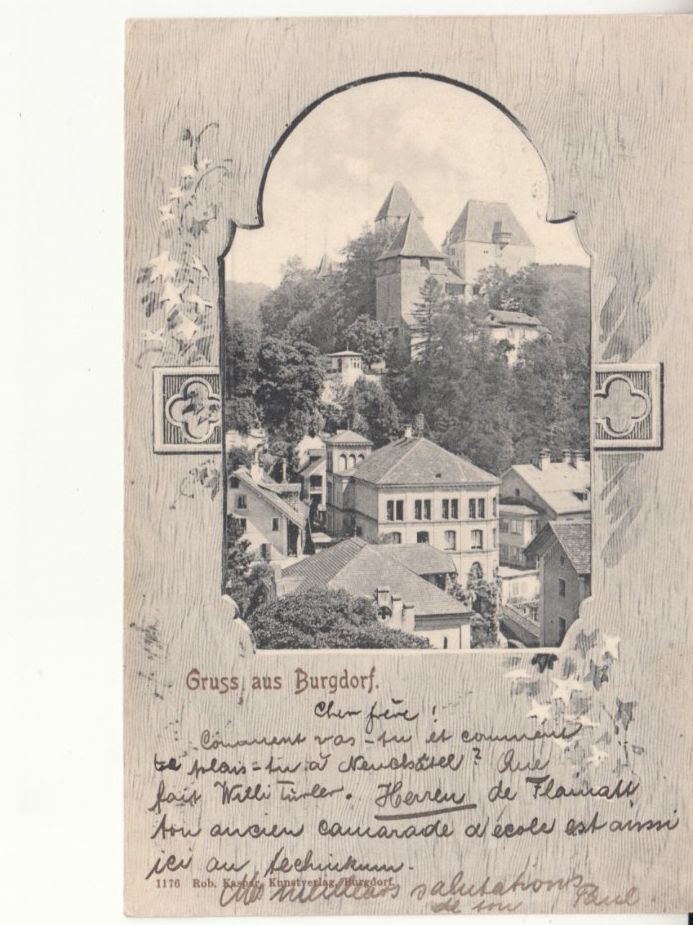 Gruss aus Burgdorf.
Cher frère!
Comment vas-tu et comment
te plais-tu à Neuchâtel? Que
fait Willi Türler. Herren de Flamatt
ton ancien camarade d'école est aussi
ici au technikum.
1176 Rob. Kaspar, Kunstverlag, Burgdorf.
Mes meilleurs salutations
de ton Paul.